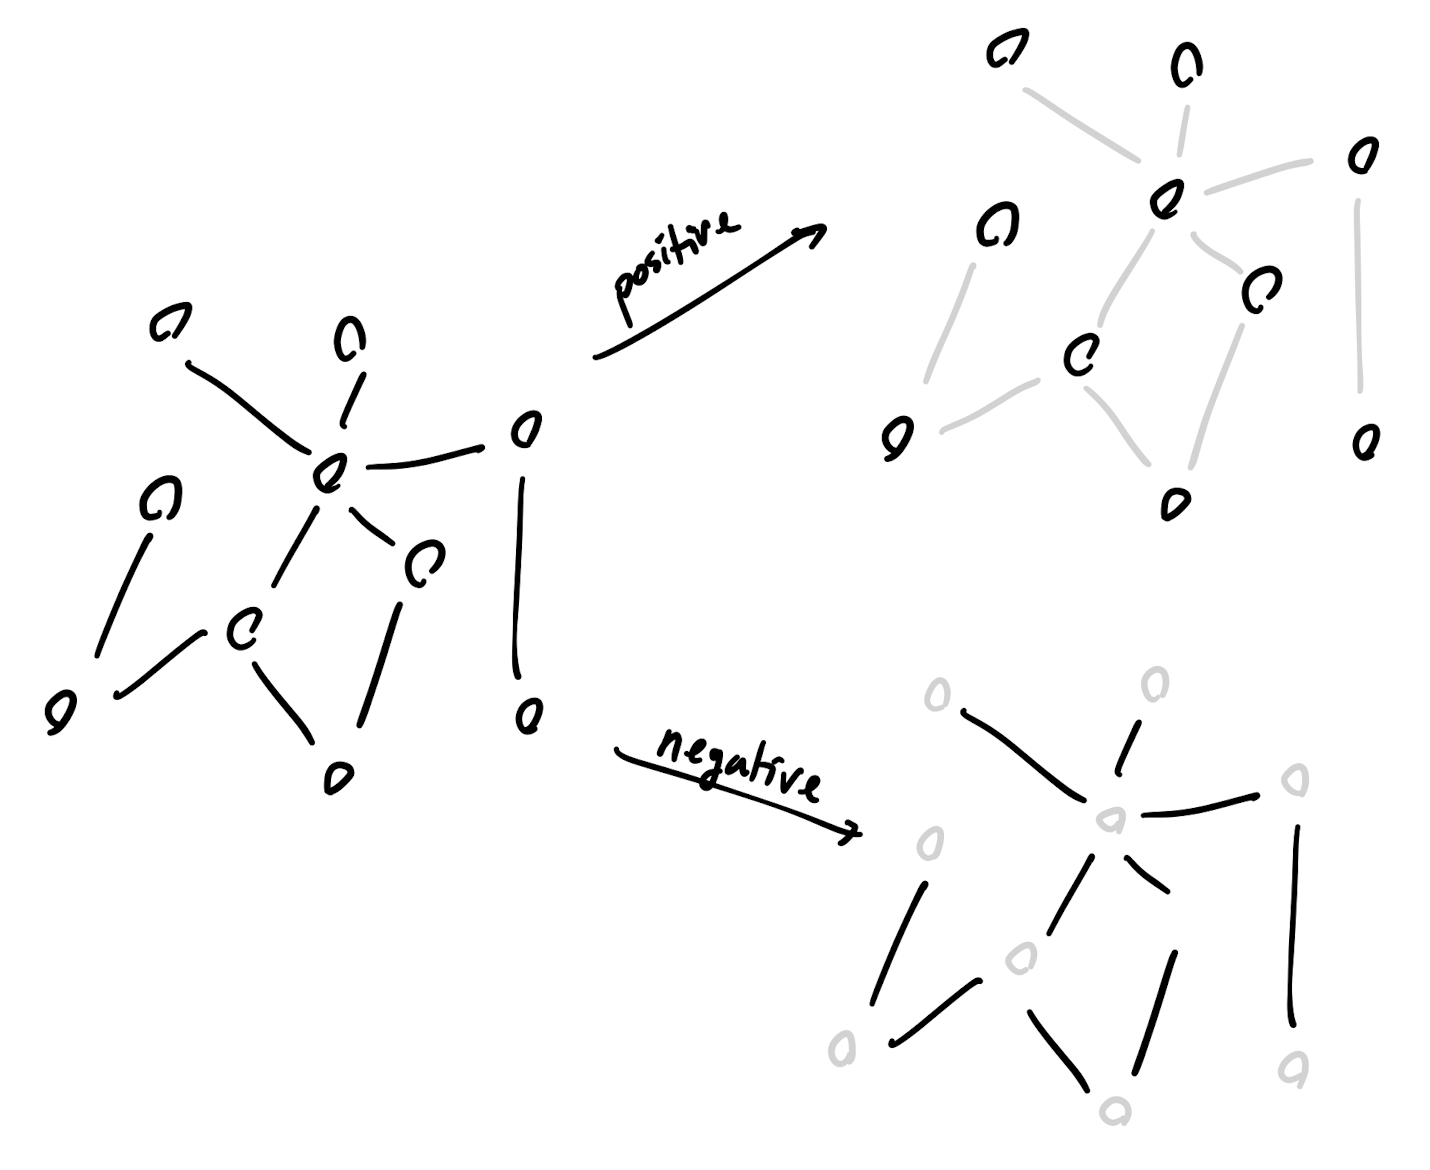 positive
negative